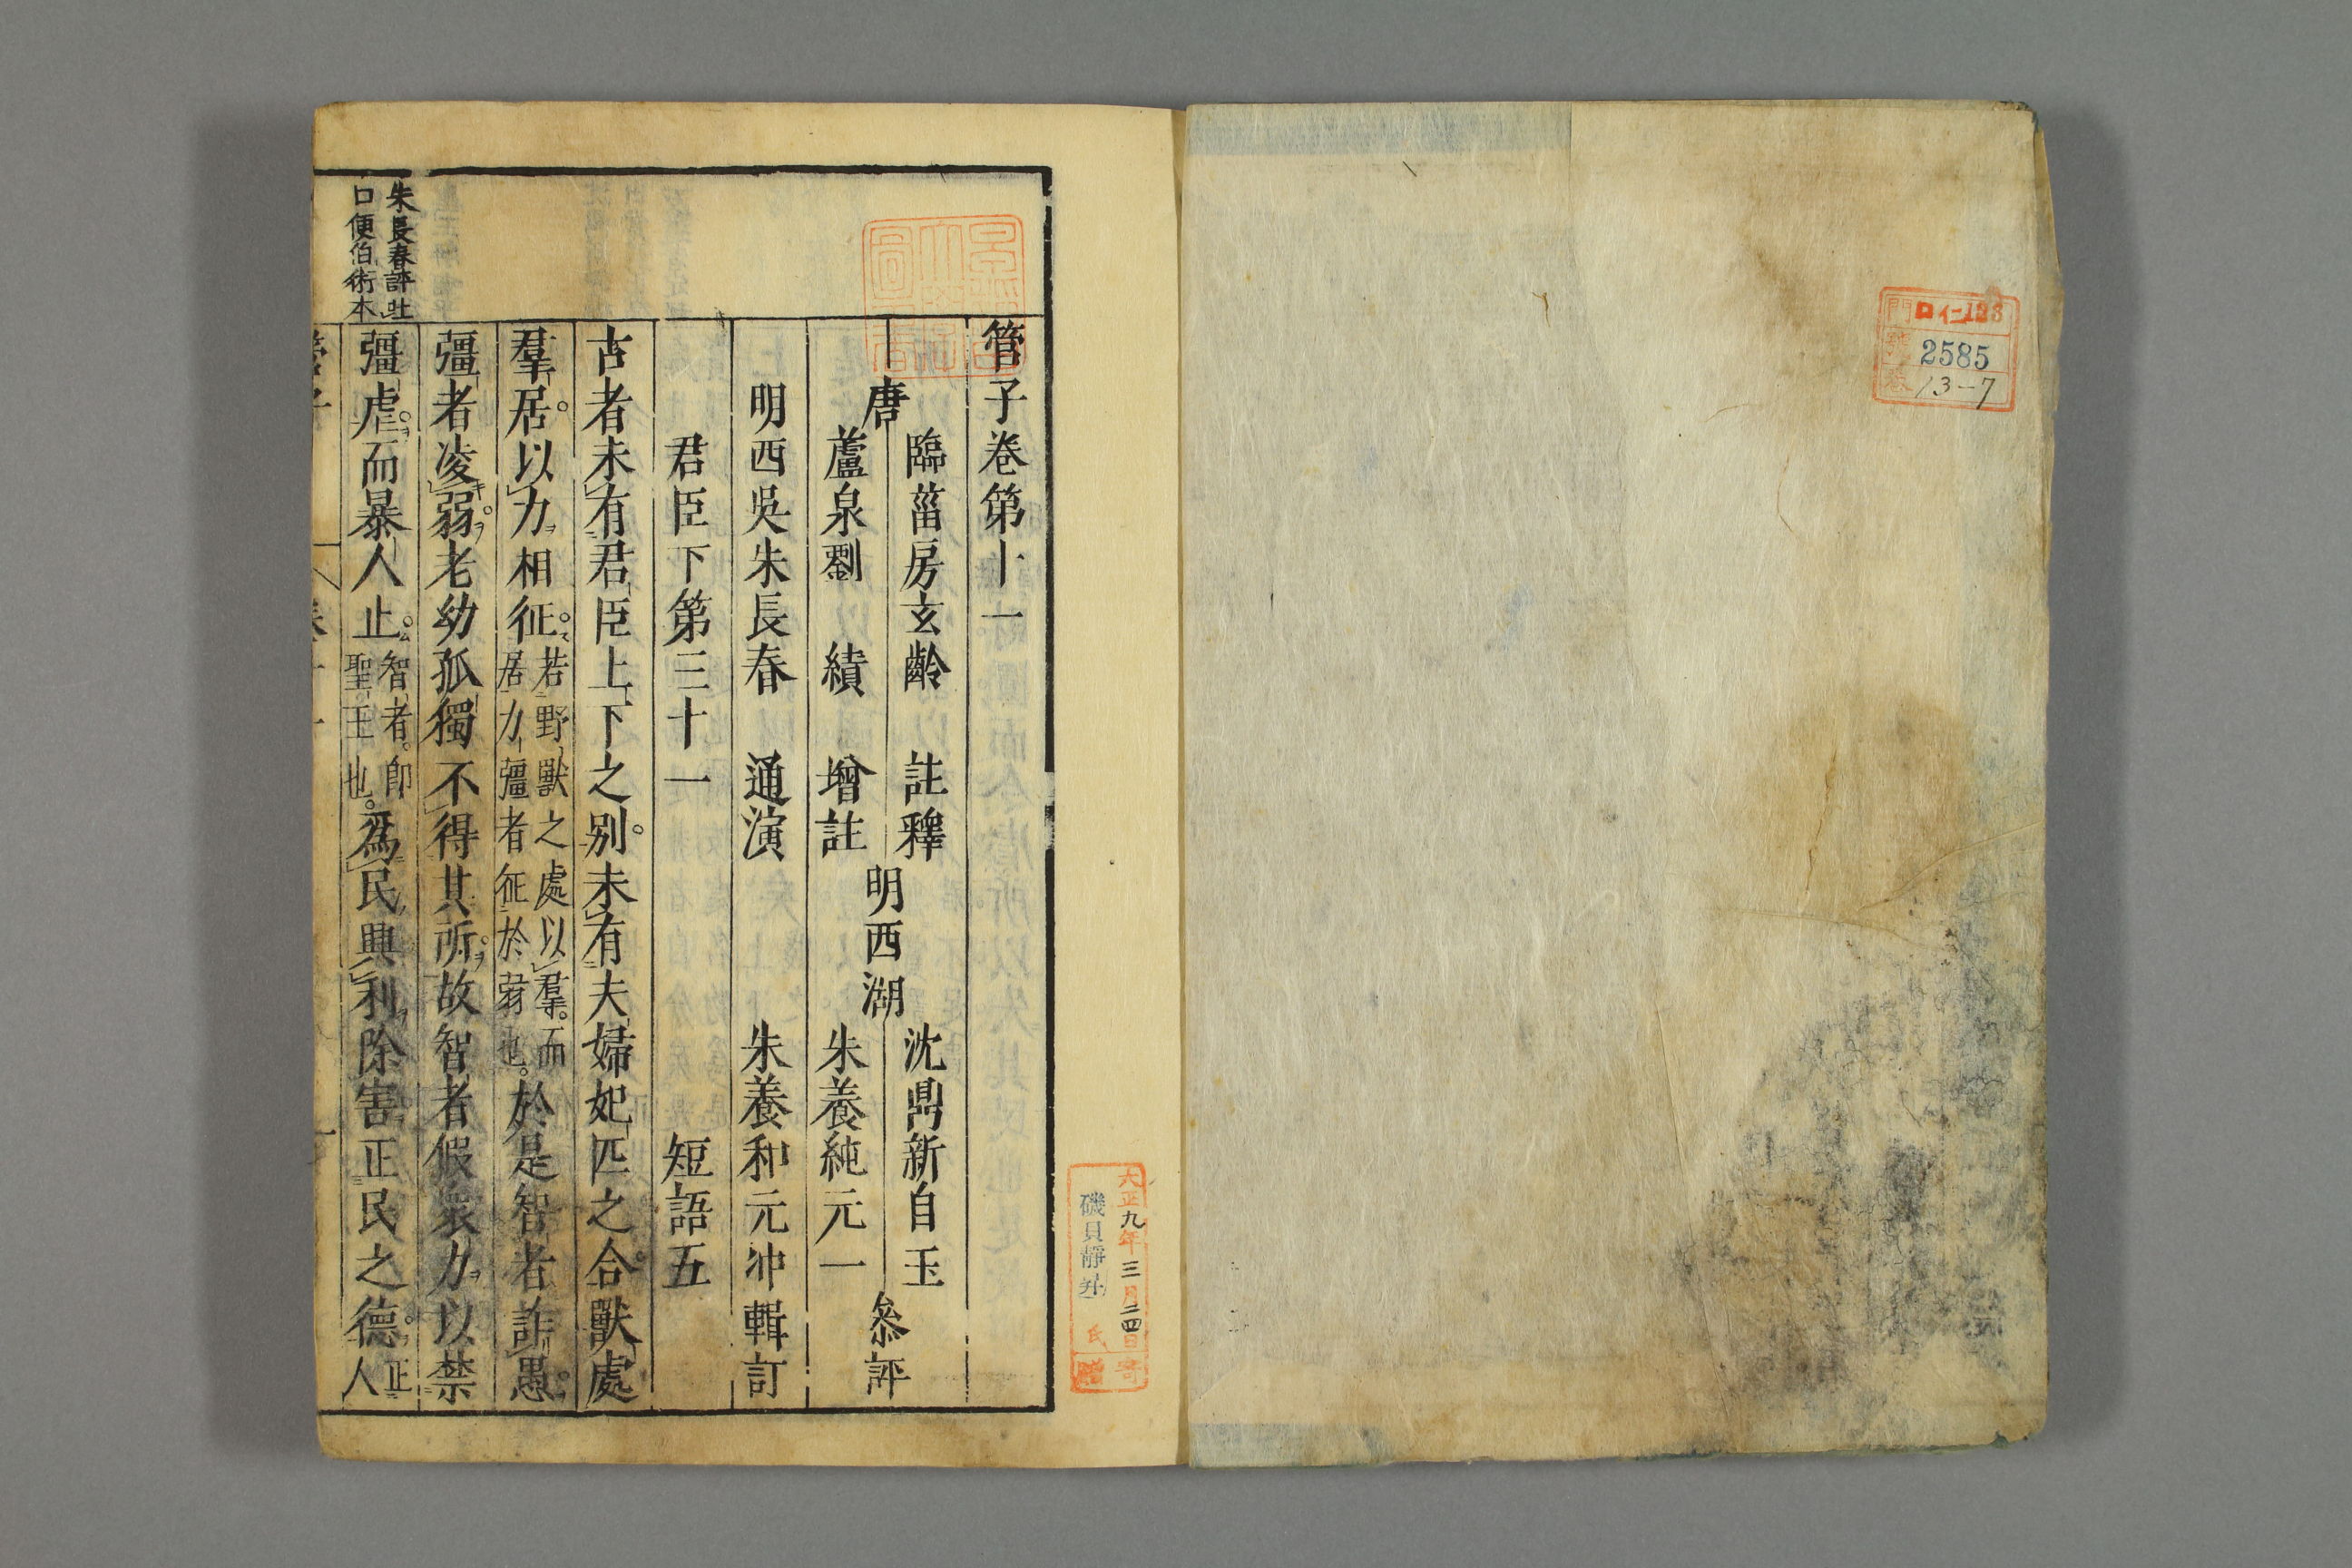 門 ロイ二123
號 2585
卷 13-7
大正九年三月二四日寄
磯貝靜男氏贈
管子卷第十一
唐
臨菑房玄齡 註釋
蘆泉劉 績 增註
明西湖
沈鼎新自玉
朱養純元一
叅評
明西吳朱長春 通演 朱養和元冲輯訂
君臣下第三十一 短語五
古者未有君臣上下之別。未有夫婦妃匹之合。獸處
羣居。以力相征。
若野獸之處以羣。而
居力彊者征於弱也。
於是智者詐愚。
彊者凌弱。老幼孤獨不得其所。故智者假衆力以禁
彊虐。而暴人止。
智者。卽
聖王也。
爲民興利除害正民之德。
正
人
朱長春評壯
口便伯術本